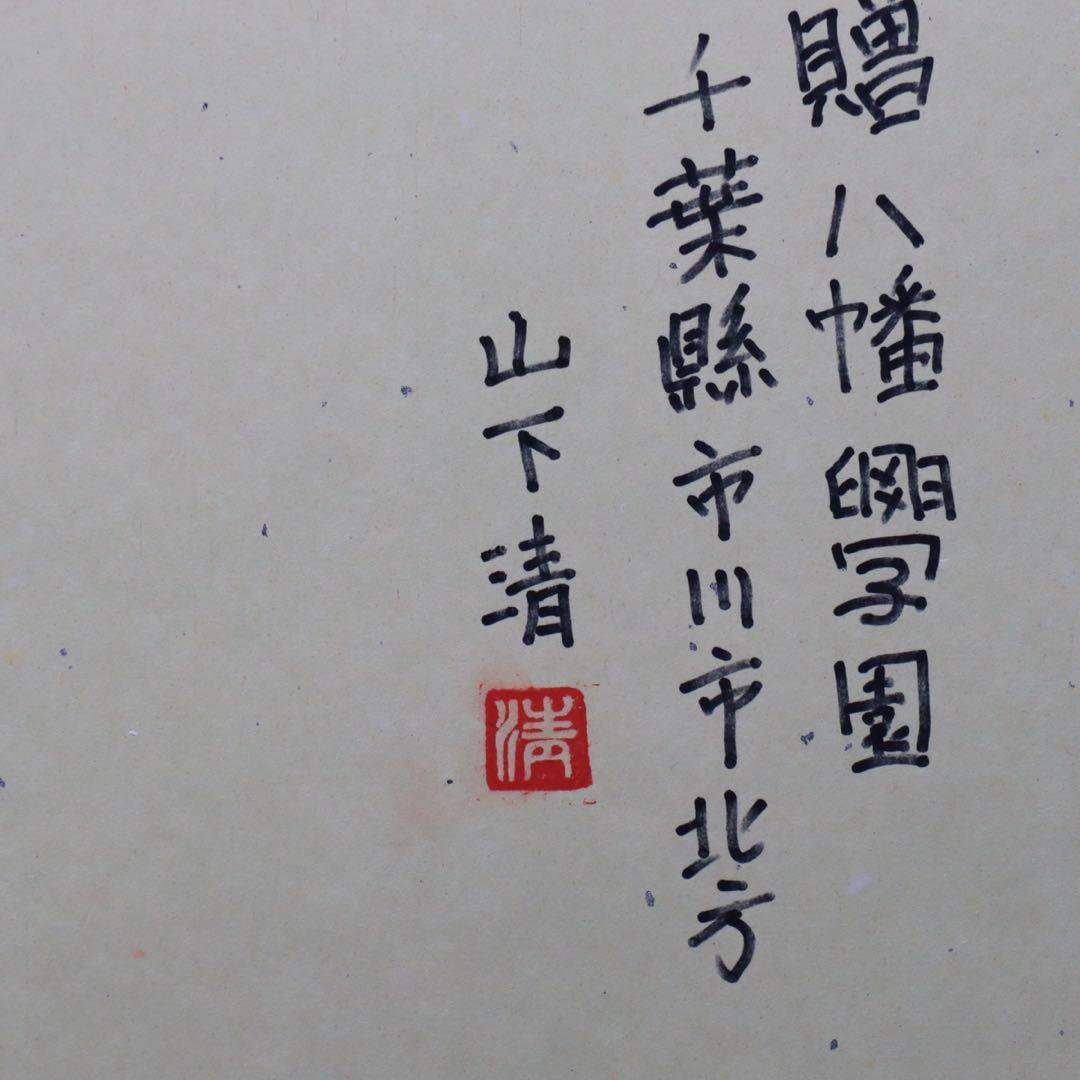 贈八幡學園
千葉縣市川市北方
山下清
清